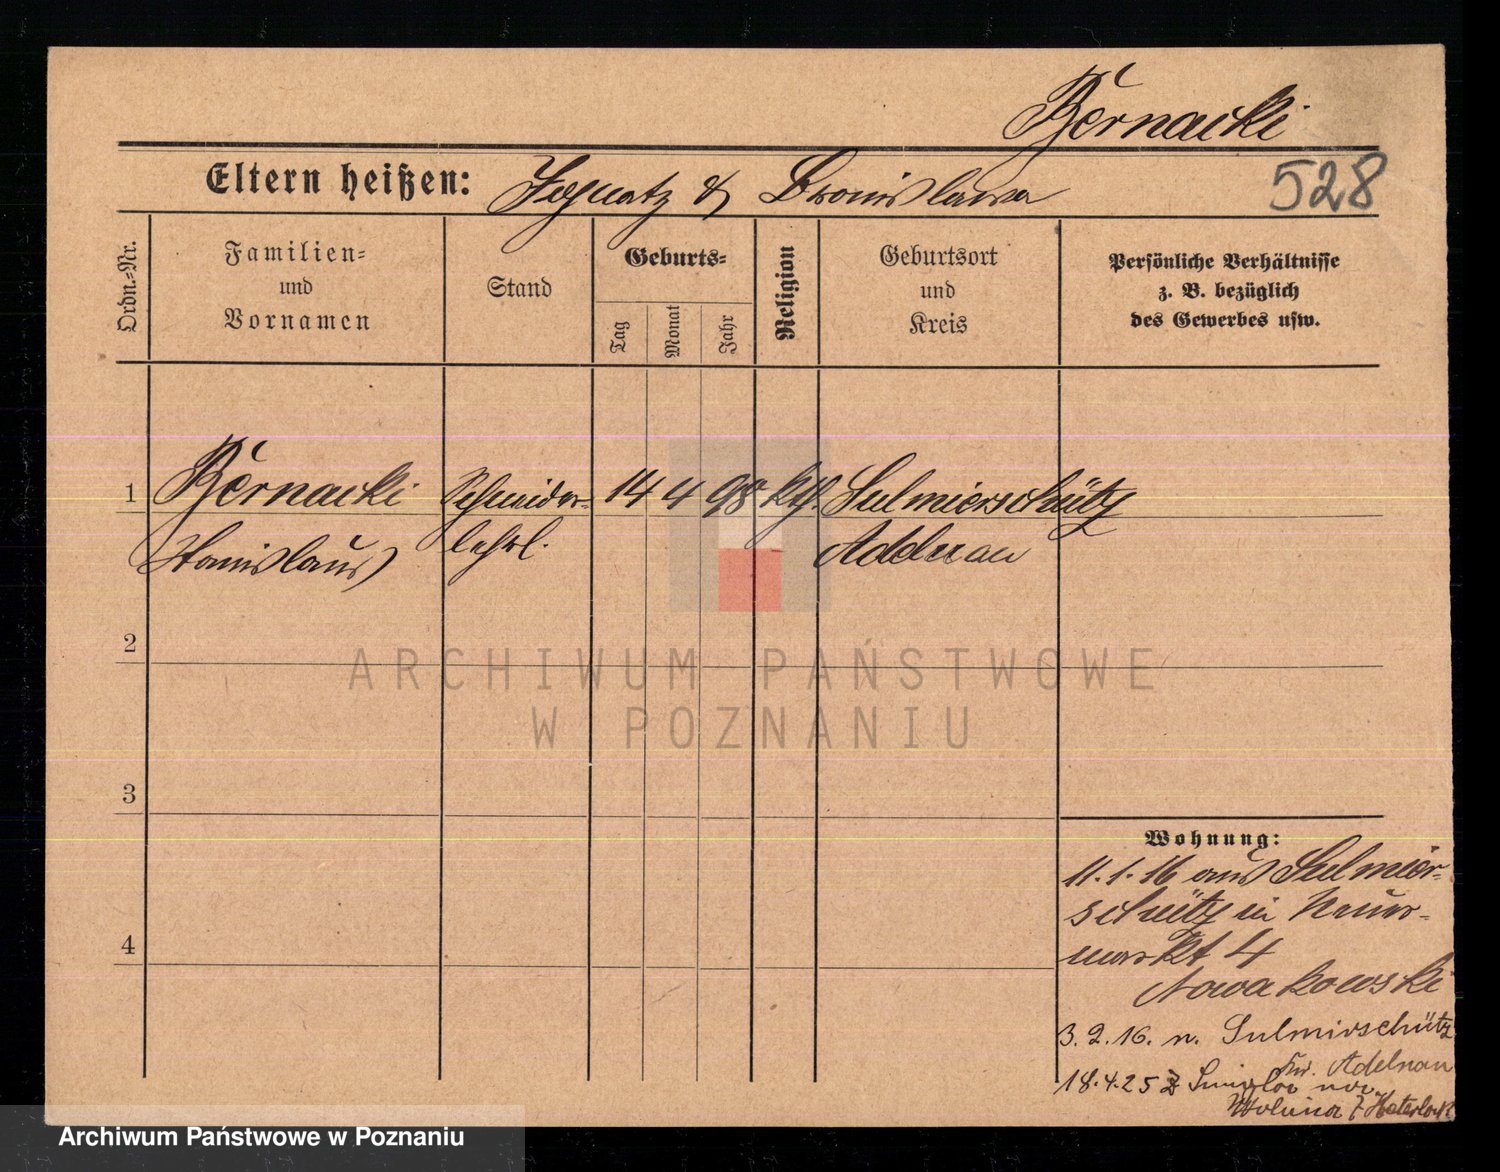 Bernacki
Eltern heißen: Ignatz & Bronislawa
528
Ordn.=Nr.
Familien=
und
Vornamen
Stand
Geburts=
Tag
Monat
Jahr
Religion
Geburtsort
und
Kreis
Persönliche Verhältnisse
z. B. bezüglich
des Gewerbes usw.
1 Bernacki Schneider- 14 4 98 kth. Sulmierschütz
Stanislaus lehrl. Adelnau
2
3
4
Wohnung:
11.1.16 aus Sulmier-
schütz in Neuer-
markt 4
Nowakowski
3.2.16. n. Sulmirschütz
Kr. Adelnau
18.4.25 z
ARCHIWUM PAŃSTWOWE
W POZNANIU
Archiwum Państwowe w Poznaniu